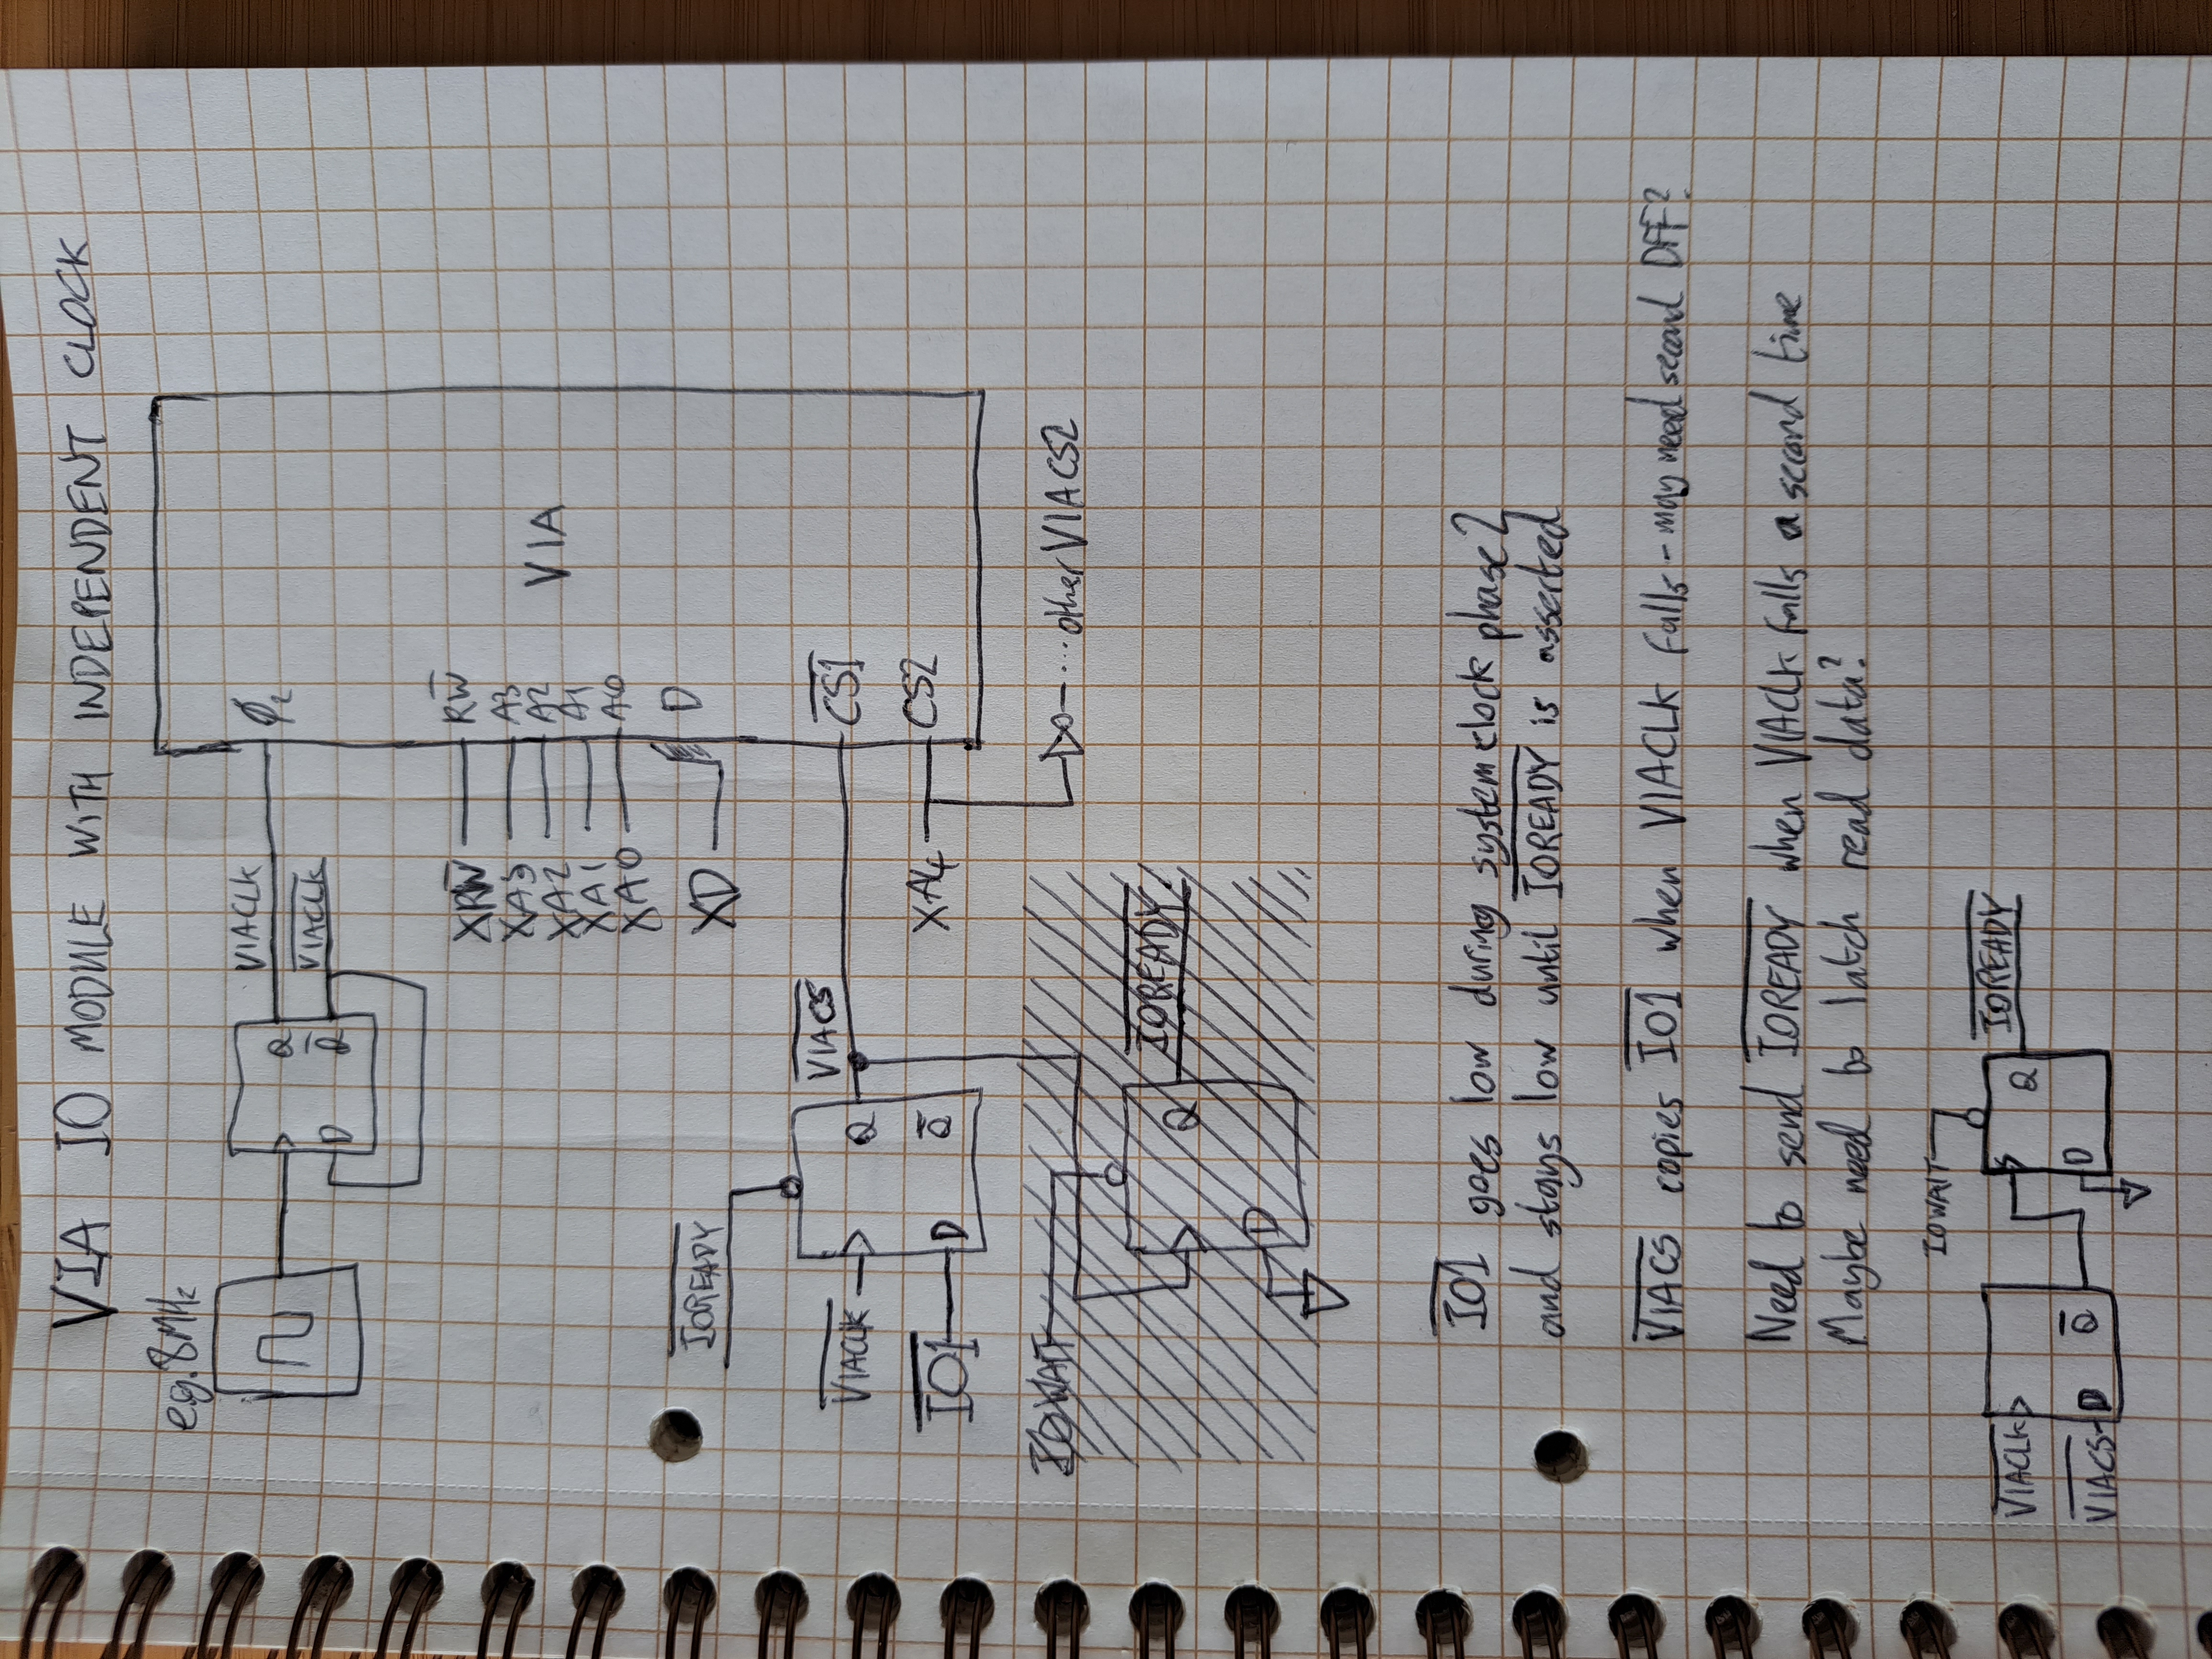 VIA IO MODULE WITH INDEPENDENT CLOCK
e.g. 8MHz
VIACLK
V̅I̅A̅C̅L̅K̅
Q
Q̅
D
ϕ₂
XRW̅
RW̅
XA3
A3
XA2
A2
XA1
A1
XA0
A0
XD
D
VIA
I̅O̅R̅E̅A̅D̅Y̅
V̅I̅A̅C̅S̅
C̅S̅1̅
V̅I̅A̅C̅L̅K̅
Q
I̅O̅1̅
D
Q̅
XA4
CS2
...other VIA CS2
IOWAIT
I̅O̅R̅E̅A̅D̅Y̅
Q
D
I̅O̅1̅ goes low during system clock phase 2
and stays low until I̅O̅R̅E̅A̅D̅Y̅ is asserted
V̅I̅A̅C̅S̅ copies I̅O̅1̅ when VIACLK falls - may need second DFF?
Need to send I̅O̅R̅E̅A̅D̅Y̅ when VIACLK falls a second time
Maybe need to latch read data?
IOWAIT
I̅O̅R̅E̅A̅D̅Y̅
V̅I̅A̅C̅L̅K̅
Q
V̅I̅A̅C̅S̅
D
Q̅
D